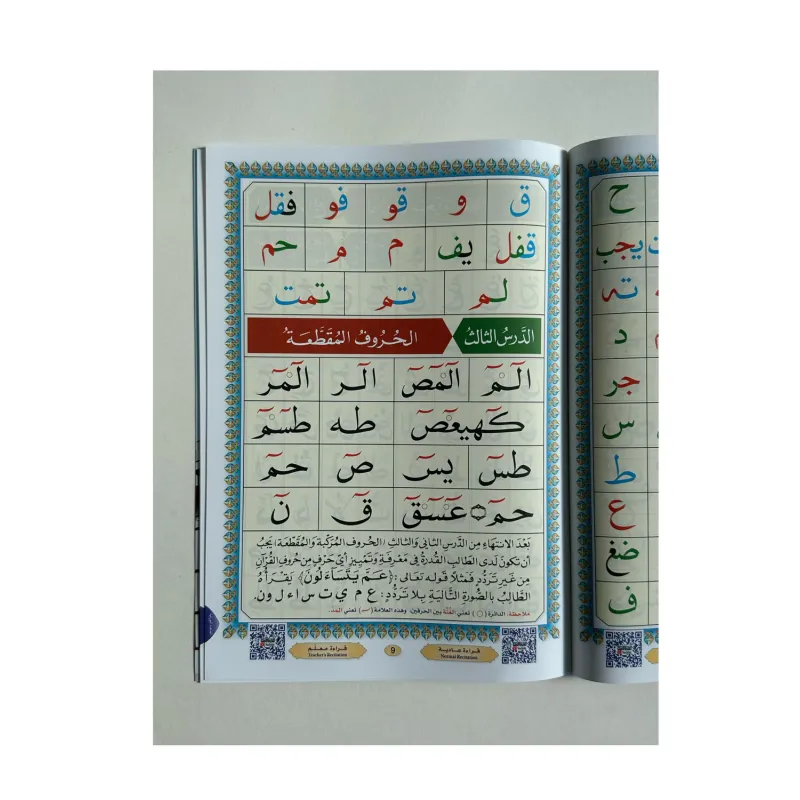 ق و قو فو فقل
قفل يف م م حم
لم تم تمت
الدَّرسُ الثالثُ الحُرُوفُ المُقَطَّعَةُ
الٓمٓ الٓمٓصٓ الٓر الٓمٓر
كٓهيعٓصٓ طه طسٓمٓ
طسٓ يسٓ صٓ حمٓ
حمٓ ۝ عٓسٓقٓ قٓ نٓ
بَعْدَ الانتِهَاءِ مِنَ الدَّرسِ الثاني وَالثالِثِ (الحُروفِ المُرَكَّبَةِ وَالمُقَطَّعَةِ) يَجِبُ
أن تكونَ لَدى الطّالِبِ القُدرَةُ في مَعرِفَةِ وَتَمْييزِ أيِّ حَرْفٍ مِن حُروفِ القُرآنِ
مِن غَيرِ تَردُّدٍ فَمَثَلًا قوله تعالى: ﴿عَمَّ يَتَسَآءَلُونَ﴾ يَقرَأُهُ
الطَّالِبُ بِالصُّورَةِ التَّالِيَةِ بِلا تَردُّدٍ: ع م ي ت س ا ء ل و ن.
ملاحظة: الدائرة (○) تعني الغُنَّة بين الحرفين، وهذه العلامة (ٓ) تعني المَدّ.
قراءة معلم
Teacher's Recitation
9
قراءة عادية
Normal Recitation
ح
يجب
ته
د
جر
س
ط
ع
ضغ
ف